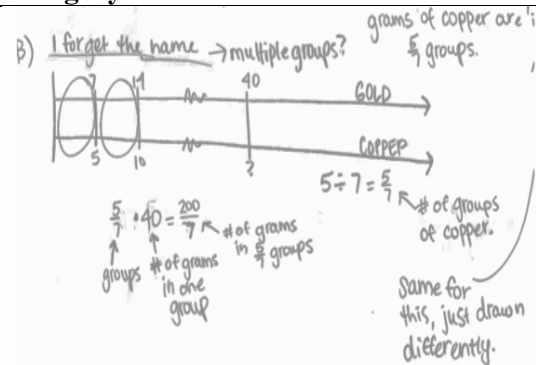 grams of copper are i
5/7 groups.
B) I forget the name → multiple groups?
7 14 40 GOLD
5 10 ? COPPER
5÷7 = 5/7
# of groups
of copper.
5/7 · 40 = 200/7
# of grams
in 5/7 groups
groups
# of grams
in one
group
Same for
this, just drawn
differently.